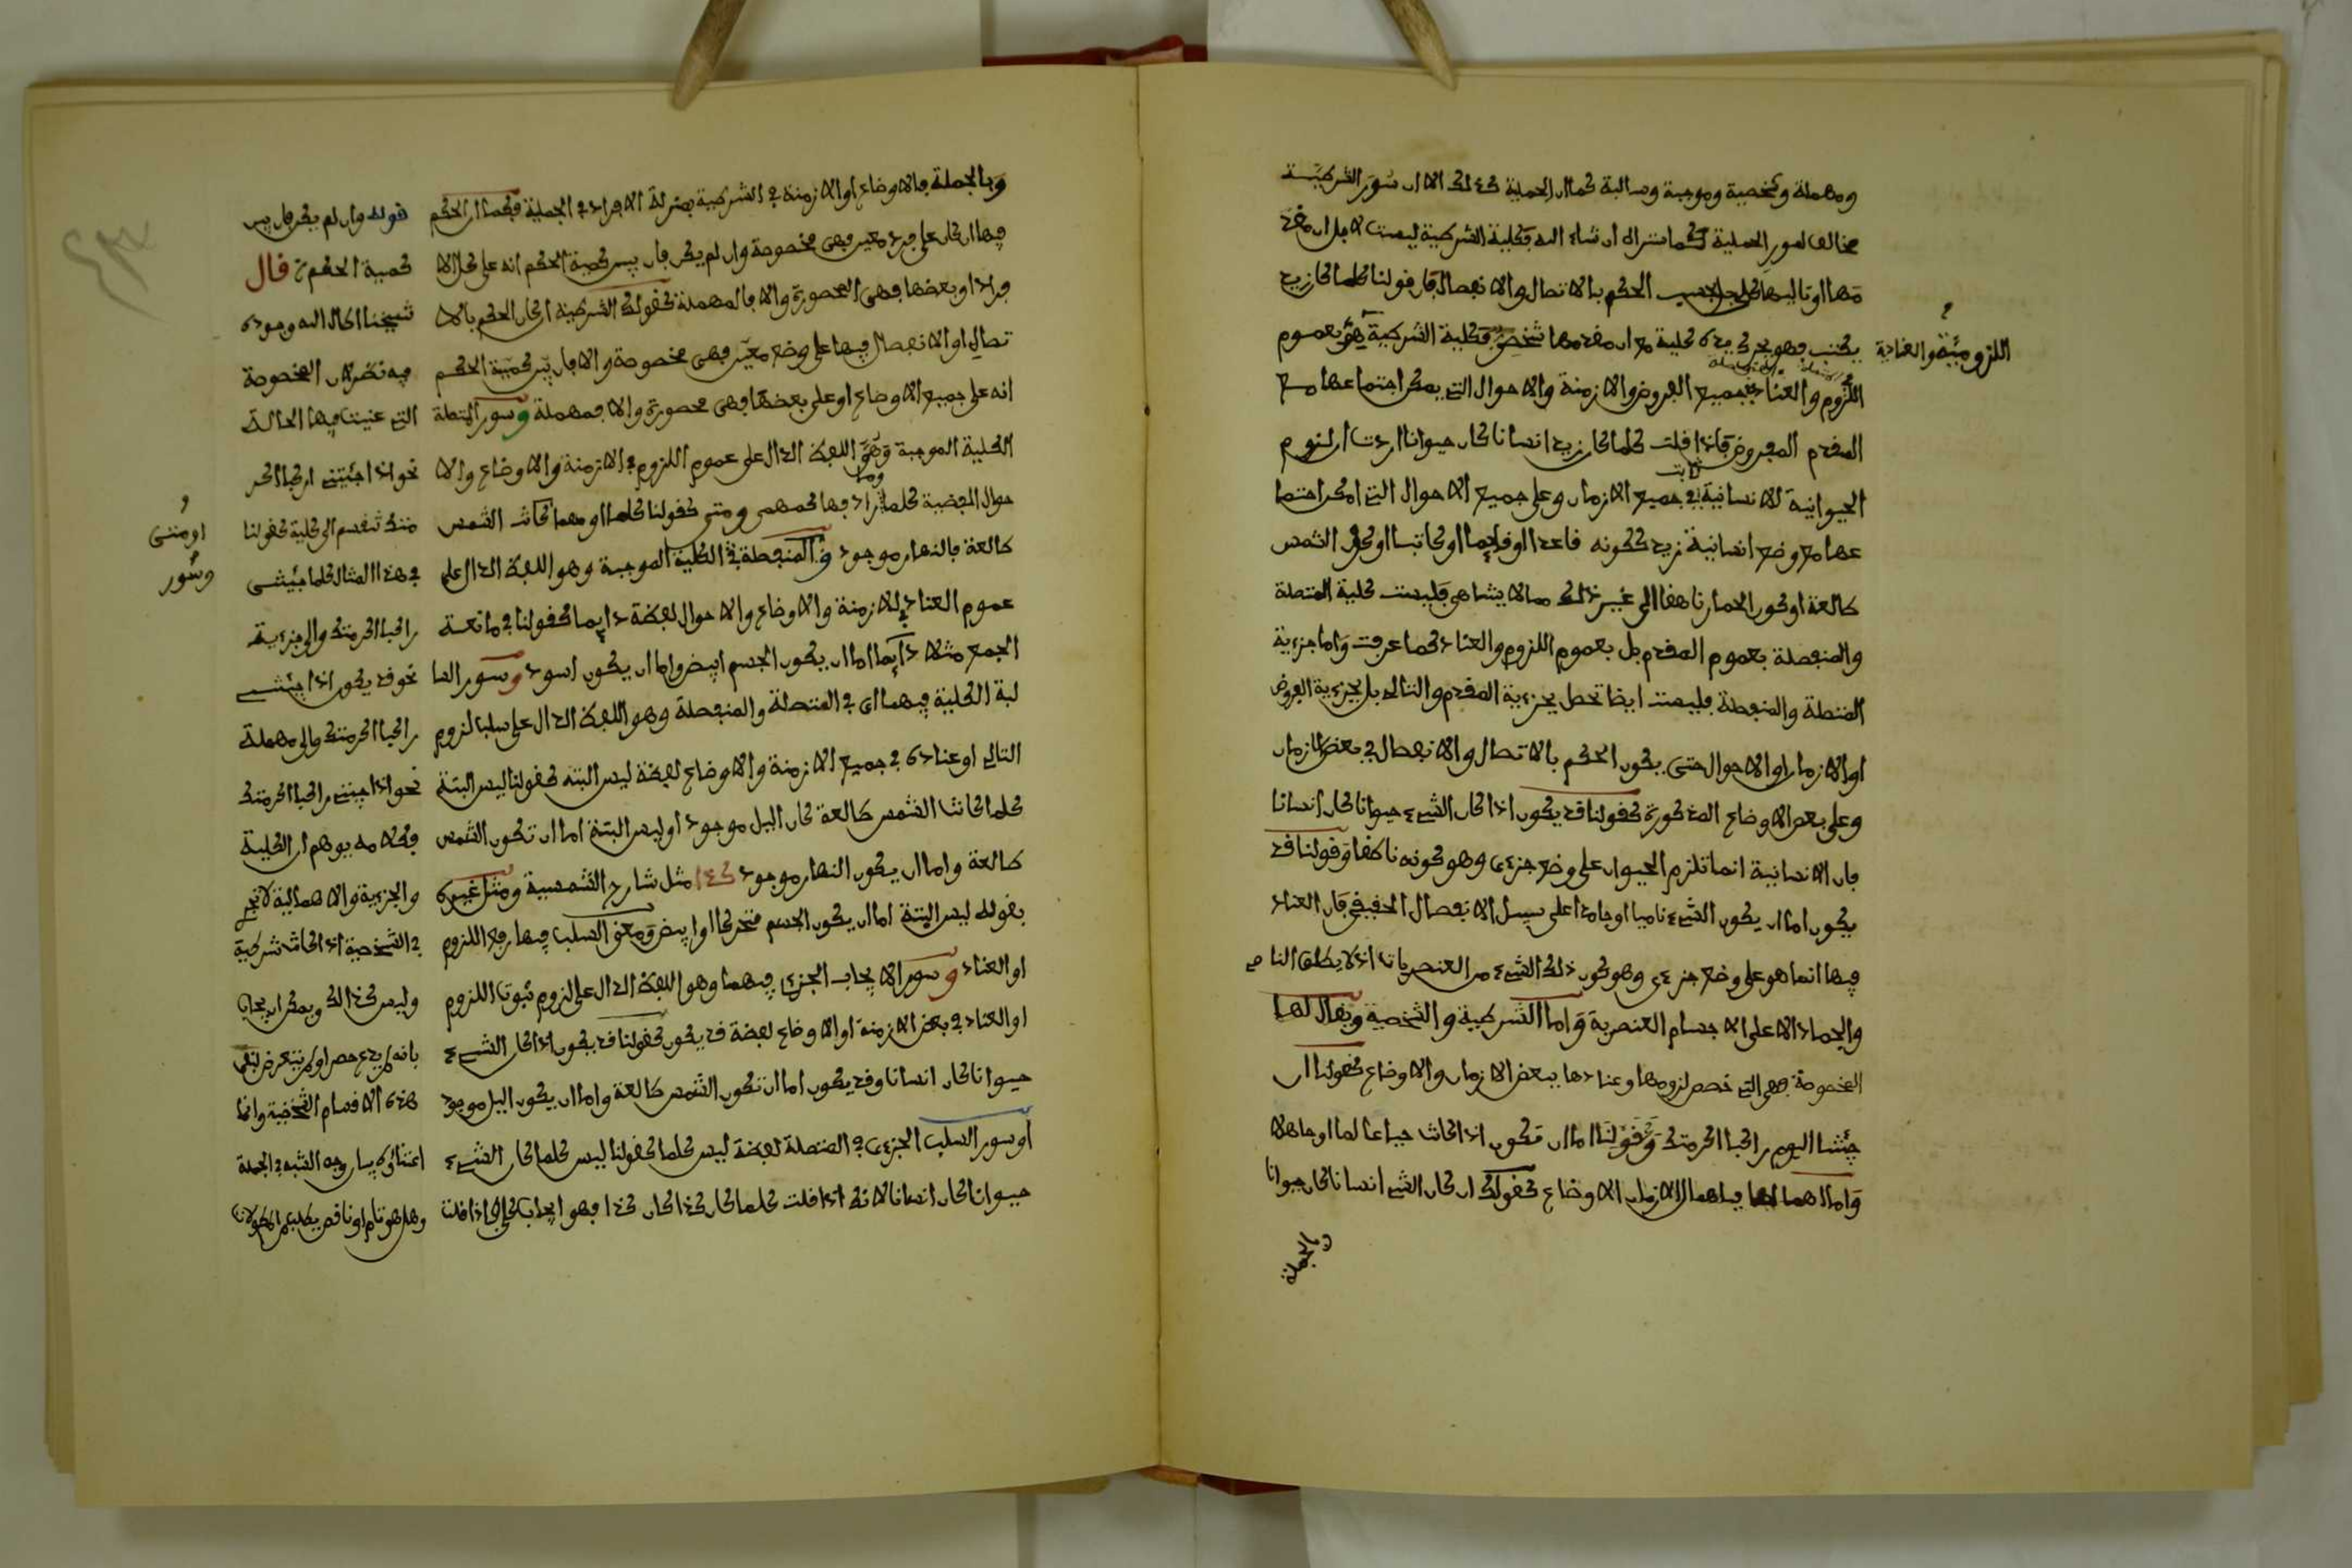 ومهملة وشخصية وموجبة وسالبة كما ان الحملية كذلك الا ان سور الشرطية
مخالف لسور الحملية كما ستراه ان شاء الله فكلية الشرطية ليست لاجل ان مقد
مها او تاليها كلي بل بحسب الحكم بالاتصال والانفصال فان قولنا كلما كان زيد
يكتب فهو يحرك يده كلية مع ان مقدمها شخصي فكلية الشرطية هو بعموم
اللزومية والعنادية
اللزوم والعناد بجميع الفروض والازمنة والاحوال التي يمكن اجتماعها مع
المقدم المفروض فاذا قلت كلما كان زيد انسانا كان حيوانا اردت ان لزوم
الحيوانية للانسانية ثابت في جميع الازمان وعلى جميع الاحوال التي امكن اجتما
عها مع وضع انسانية زيد ككونه قاعدا او قايما او كاتبا او كون الشمس
طالعة او كون الحمار ناهقا الى غير ذلك مما لا يتناهى فليست كلية المتصلة
والمنفصلة بعموم المقدم بل بعموم اللزوم والعناد كما عرفت واما جزءية
المتصلة والمنفصلة فليست ايضا تحصل بجزءية المقدم والتالي بل بجزءية الفروض
او الازمان او الاحوال حتى يكون الحكم بالاتصال والانفصال في بعض الازمان
وعلى بعض الاوضاع المذكورة كقولنا قد يكون اذا كان الشيء حيوانا كان انسانا
فان الانسانية انما تلزم الحيوان على وضع جزءي وهو كونه ناطقا وقولنا قد
يكون اما ان يكون الشيء ناميا او جامدا على سبيل الانفصال الحقيقي فان العناد
فيها انما هو على وضع جزءي وهو كون ذلك الشيء من العنصريات اذ لا يطلق النامي
والجماد الا على الاجسام العنصرية واما الشرطية والشخصية ويقال لها
المخصوصة فهي التي خصص لزومها وعنادها ببعض الازمان والاوضاع كقولنا ان
جئتنا اليوم راكبا اكرمتك وقولنا اما ان تكون اذا كانت حيا عالما او جاهلا
واما اهمالها فباهمال الازمان والاوضاع كقولك ان كان الشيء انسانا كان حيوانا
وبالجملة
وبالجملة فالاوضاع او الازمنة في الشرطية بمنزلة الافراد في الحملية فكما ان الحكم
فيها ان كان على فرد معين فهي مخصوصة وان لم يكن فان بين كمية الحكم انه على كل الا
فراد او بعضها فهي المحصورة والا فالمهملة كقولك الشرطية ان كان الحكم بالا
تصال او الانفصال فيها على وضع معين فهي مخصوصة والا فان بين كمية الحكم
انه على جميع الاوضاع او على بعضها فهي محصورة والا فمهملة وسور المتصلة
الكلية الموجبة وهو اللفظ الدال على عموم اللزوم في الازمنة والاوضاع والا
حوال المفضية كلما وما راد فها كمهمى ومتى كقولنا كلما او مهما كانت الشمس
طالعة فالنهار موجود والمنفصلة في الكلية الموجبة وهو اللفظ الدال على
عموم العناد في الازمنة والاوضاع والاحوال لفظة دايما كقولنا في مانعة
الجمع مثلا دايما اما ان يكون الجسم ابيض واما ان يكون اسود وسور السا
لبة الكلية فيهما اي في المتصلة والمنفصلة وهو اللفظ الدال على سلب لزوم
التالي او عناده في جميع الازمنة والاوضاع لفظة ليس البتة كقولنا ليس البتة
كلما كانت الشمس طالعة كان اليل موجود او ليس البتة اما ان تكون الشمس
طالعة واما ان يكون النهار موجود كذا مثل شارح الشمسية ومثل غيره
بقوله ليس البتة اما ان يكون الجسم متحركا او ابيض ومعنى السلب فيها رفع اللزوم
او العناد وسور الايجاب الجزءي فيهما وهو اللفظ الدال على لزوم ثبوت اللزوم
او العناد في بعض الازمنة او الاوضاع لفظة قد يكون كقولنا قد يكون اذا كان الشيء
حيوانا كان انسانا وقد يكون اما ان تكون الشمس طالعة واما ان يكون اليل موجود
او سور السلب الجزءي في المتصلة لفظة ليس كلما كقولنا ليس كلما كان الشيء
حيوانا كان انسانا لانك اذا قلت كلما كان كذا كان كذا فهو ايجاب كلي فاذا قلت
قوله وان لم يكن فان بين
كمية الحكم قال
شيخنا اطال الله وجوده
فيه نظر لان المخصوصة
التي عينت فيها الحالة
نحو اذا جئتني راكبا اكر
متك تنقسم الى كلية كقولنا
في هذا المثال كلما جئتني
راكبا اكرمتك والى جزءية
نحو قد يكون اذا جئتني
راكبا اكرمتك والى مهملة
نحو اذا جئتني راكبا اكرمتك
فكلامه يوهم ان الكلية
والجزءية والاهمالية لا تجر
في الشخصية اذا كانت شرطية
وليس كذالك ويمكن ان يجاب
بانه لم يدع حصرا ولم يتعرض لنفي
هذه الاقسام الشخصية وانما
اعتناؤه بيان وجه الشبه في الجملة
وهل هو تام او ناقص يطلب من المطولات
او متى
وسور